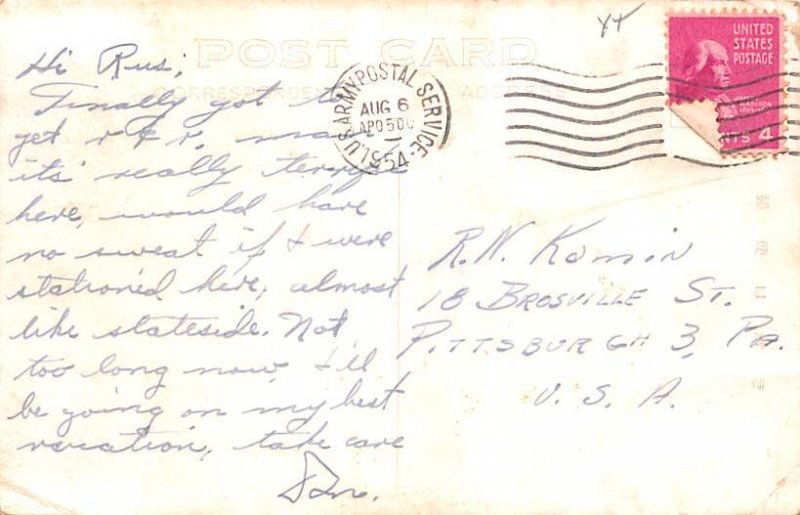 POST CARD
CORRESPONDENCE ADDRESS
U.S. ARMY POSTAL SERVICE
AUG 6
APO 500
1954
UNITED
STATES
POSTAGE
4
Hi Rus;
Finally got to
get r & r, man
its really terrific
here, would have
no sweat if I were
stationed here, almost
like stateside. Not
too long now, I'll
be going on my best
vacation, take care
R.N. Komin
18 BROSVILLE ST.
PITTSBURGH 3, PA.
U. S. A.